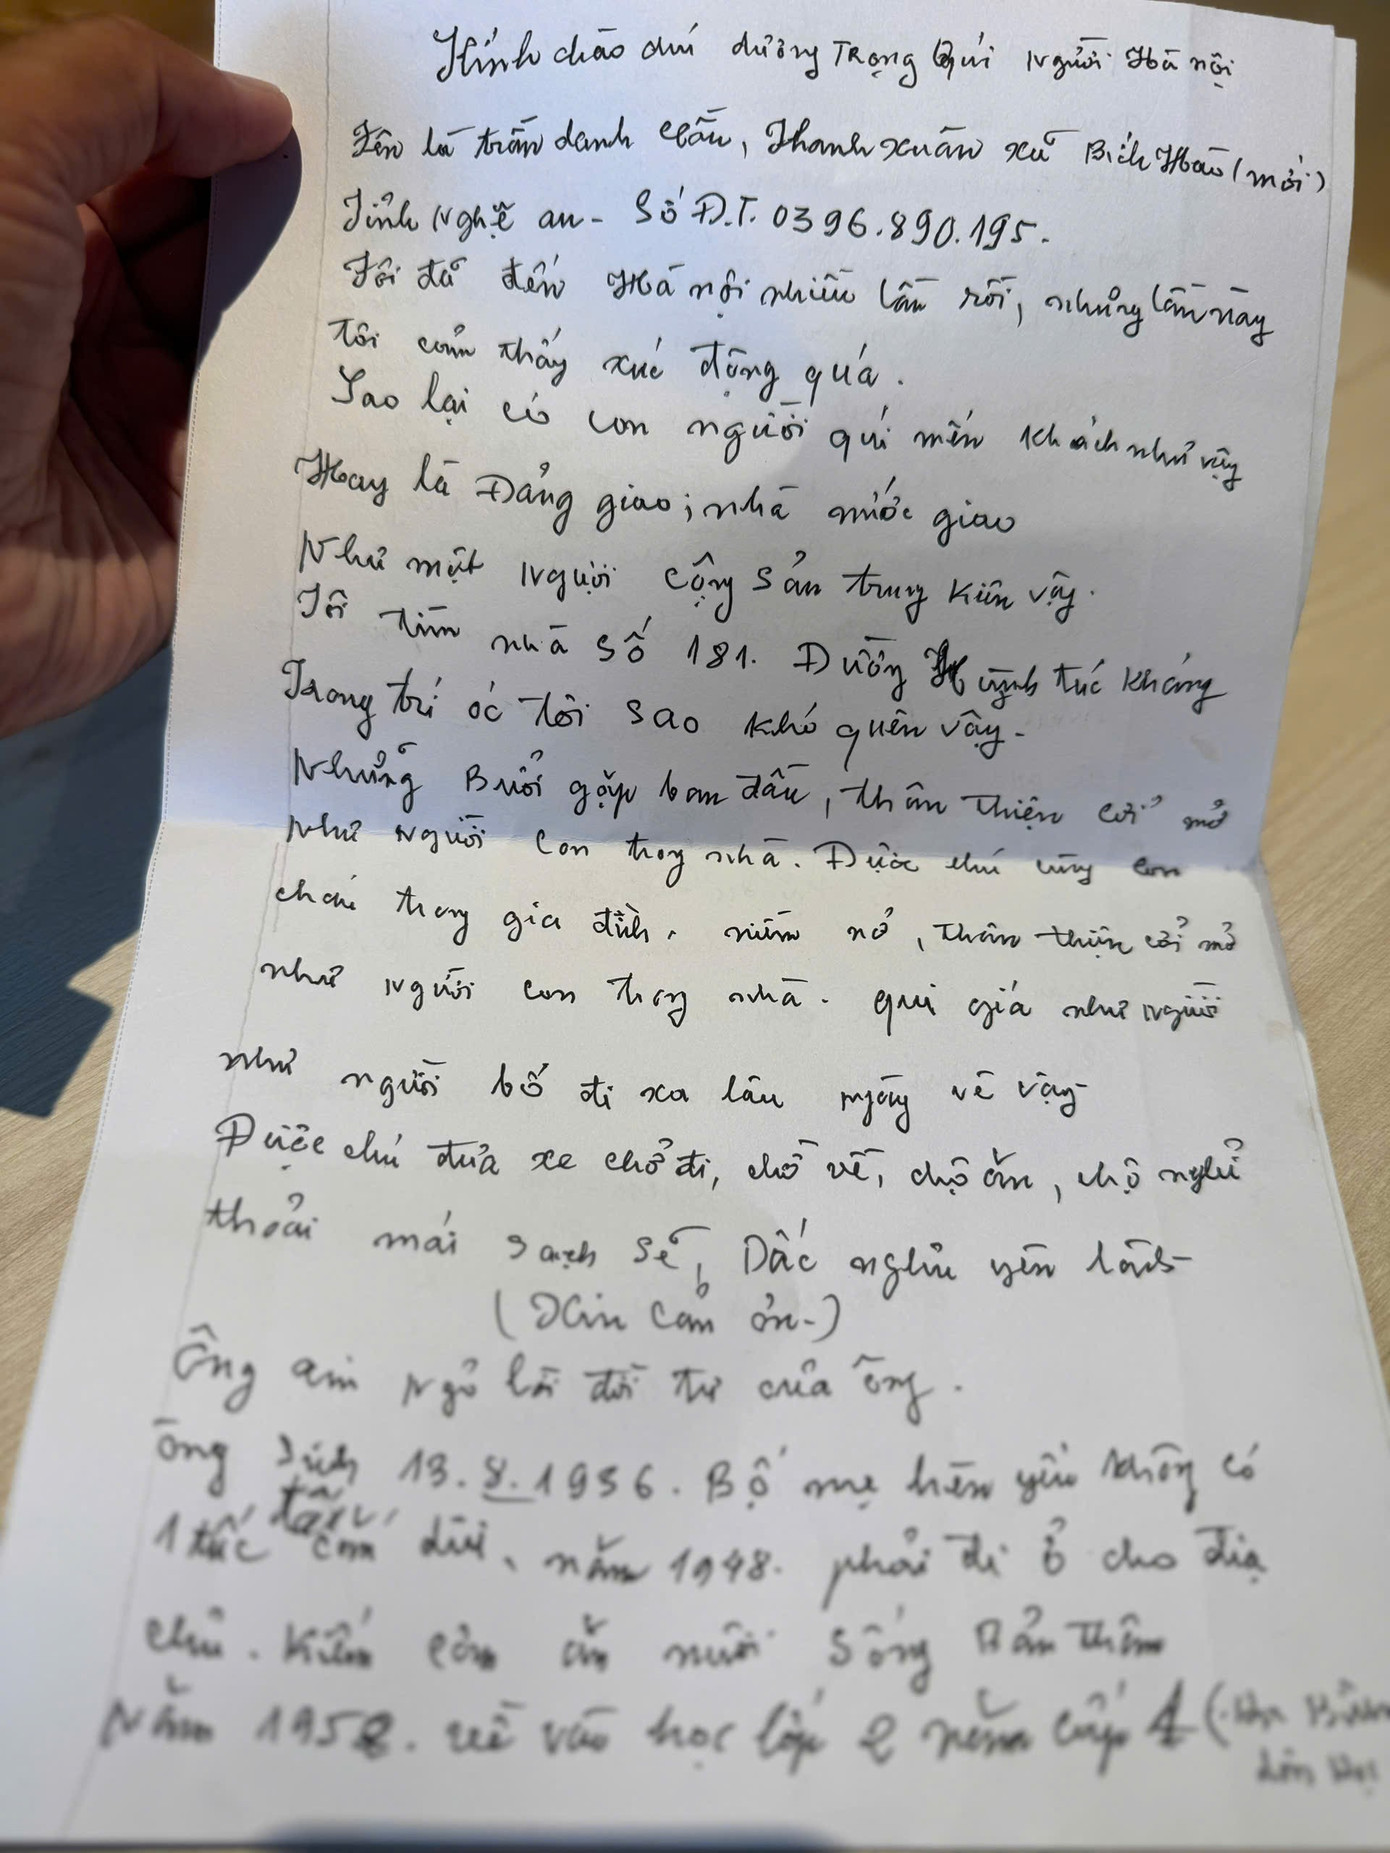 Kính chào chú dương Trọng Quí Người Hà nội
Tên là trần danh Cầu, Thanh xuân xã Bích Hào (mới)
Tỉnh Nghệ an - Số Đ.T. 0396.890.195.
Tôi đã đến Hà nội nhiều lần rồi, nhưng lần này
tôi cảm thấy xúc động quá.
Sao lại có con người quí mến khách như vậy
Hay là Đảng giao; nhà nước giao
Như một người cộng sản trung kiên vậy.
Tôi tìm nhà số 181. Đường Huỳnh túc kháng
Trong trí óc tôi sao khó quên vậy.
Những Buổi gặp ban đầu, thân thiện cởi mở
Như người con trong nhà. Được chú cùng con
cháu trong gia đình. niềm nở, thân thiện cởi mở
như người con trong nhà. quí giá như người
như người bố đi xa lâu ngày về vậy
Được chú đưa xe chở đi, chở về, chộ ăn, chộ nghỉ
thoải mái sạch sẽ, Dấc nghủ yên lành
(Xin cảm ơn-)
Ông ngỏ lời đời tư của ông.
ông Sinh 13.8.1936. Bố mẹ hèn yếu không có
1 tấc đất cắm dùi, năm 1948. phải đi ở cho địa
chủ. Kiếm cơm ăn nuôi sống Bản thân
Năm 1958. về vào học lớp 2 năm cấp 1